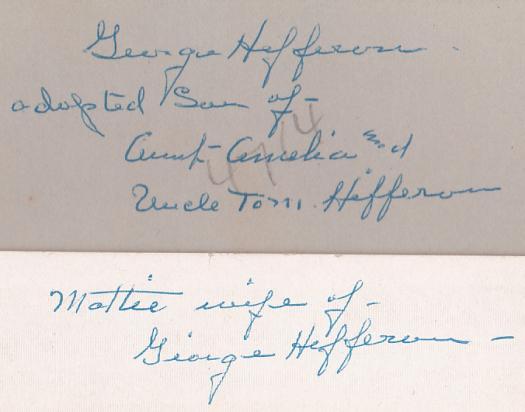 George Hefferon.
adopted Son of -
Aunt Amelia and
4714
Uncle Tom. Hefferon
Mattie wife of -
George Hefferon -